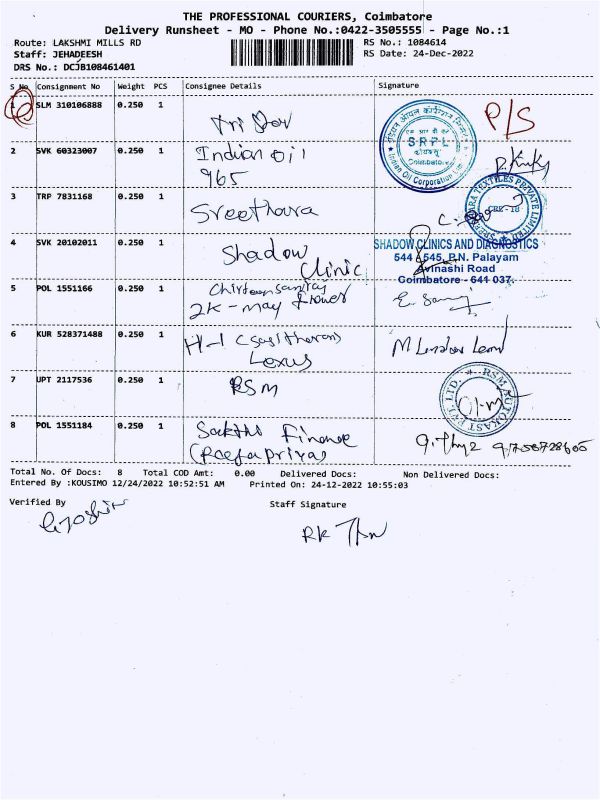 THE PROFESSIONAL COURIERS, Coimbatore
Delivery Runsheet - MO - Phone No.:0422-3505555 - Page No.:1
Route: LAKSHMI MILLS RD
RS No.: 1084614
Staff: JEHADEESH
RS Date: 24-Dec-2022
DRS No.: DCJB108461401
S No. Consignment No Weight PCS Consignee Details Signature
1 SLM 310106888 0.250 1
P/S
SRPL
Coimbatore
Indian Oil Corporation
2 SVK 60323007 0.250 1 Indian Oil
965
3 TRP 7831168 0.250 1 Sreethara
TEXTILES PRIVATE LIMITED
CBE - 18
4 SVK 20102011 0.250 1 Shadow
Clinic
SHADOW CLINICS AND DIAGNOSTICS
544 545, P.N. Palayam
Avinashi Road
Coimbatore - 641 037.
5 POL 1551166 0.250 1
2K-may flower
6 KUR 528371488 0.250 1 H-1 (Sasitharan)
Lexus
7 UPT 2117536 0.250 1 RSM
RSM AUTOKAST PVT LTD.
8 POL 1551184 0.250 1 Sakthi Finance
Total No. Of Docs: 8 Total COD Amt: 0.00 Delivered Docs: Non Delivered Docs:
Entered By :KOUSIMO 12/24/2022 10:52:51 AM Printed On: 24-12-2022 10:55:03
Verified By
Staff Signature